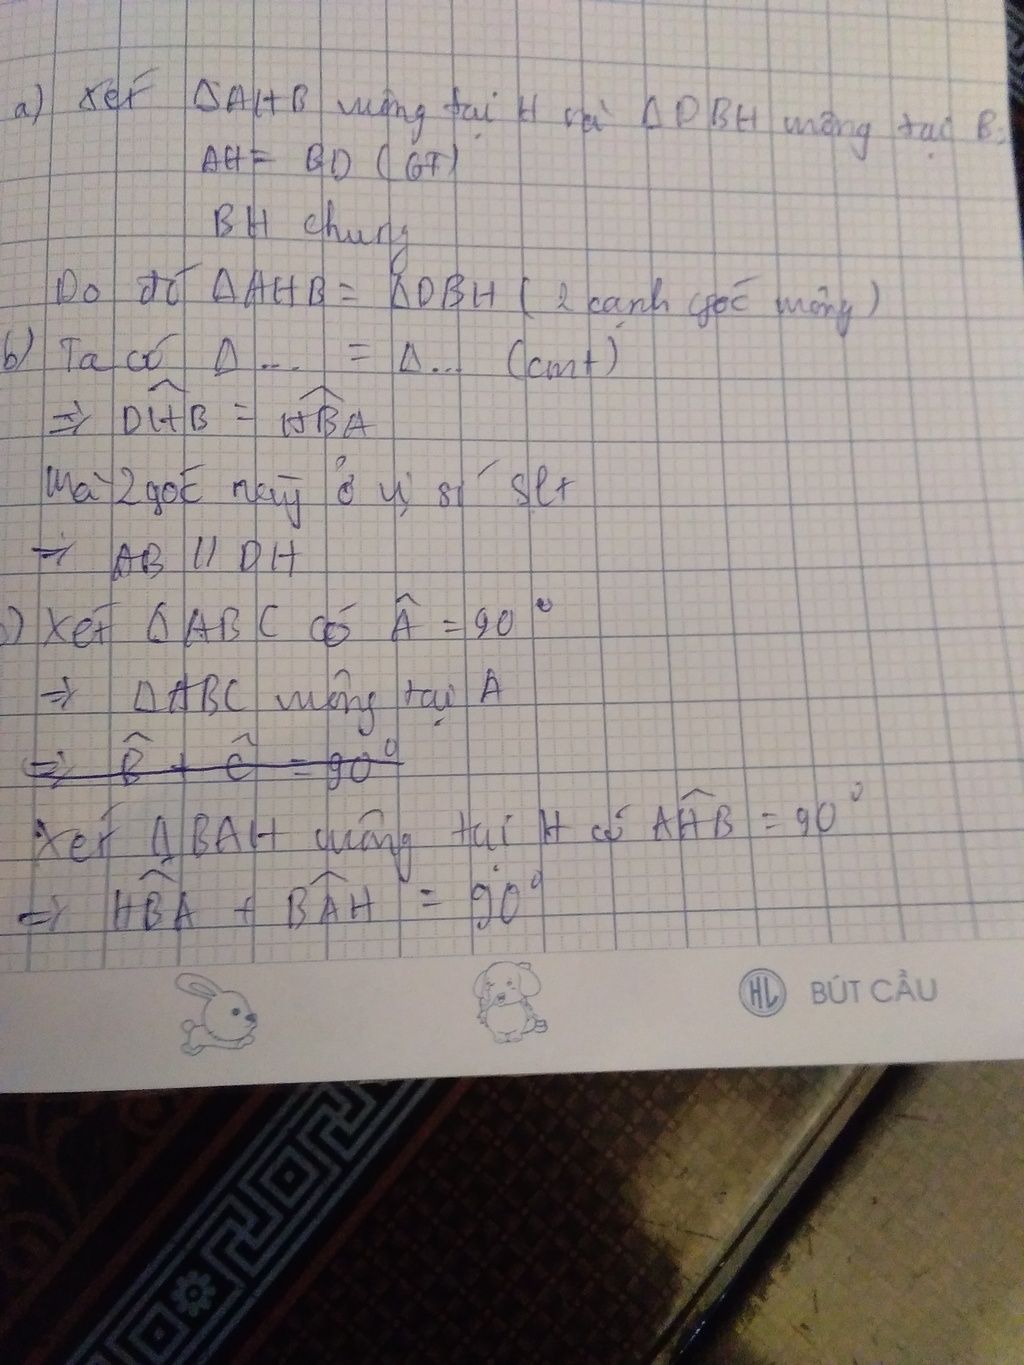 a) Xét ΔAHB vuông tại H và ΔDBH vuông tại B:
AH = BD (GT)
BH chung
Do đó ΔAHB = ΔDBH ( 2 cạnh góc vuông)
b) Ta có Δ... = Δ... (cmt)
=> DĤB = HB̂A
Mà 2 góc này ở vị sí slt
=> AB // DH
c) Xét ΔABC có Â = 90°
=> ΔABC vuông tại A
=> B̂ + Ĉ = 90°
Xét ΔBAH vuông tại H có AĤB = 90°
=> HB̂A + BÂH = 90°
HL BÚT CẦU